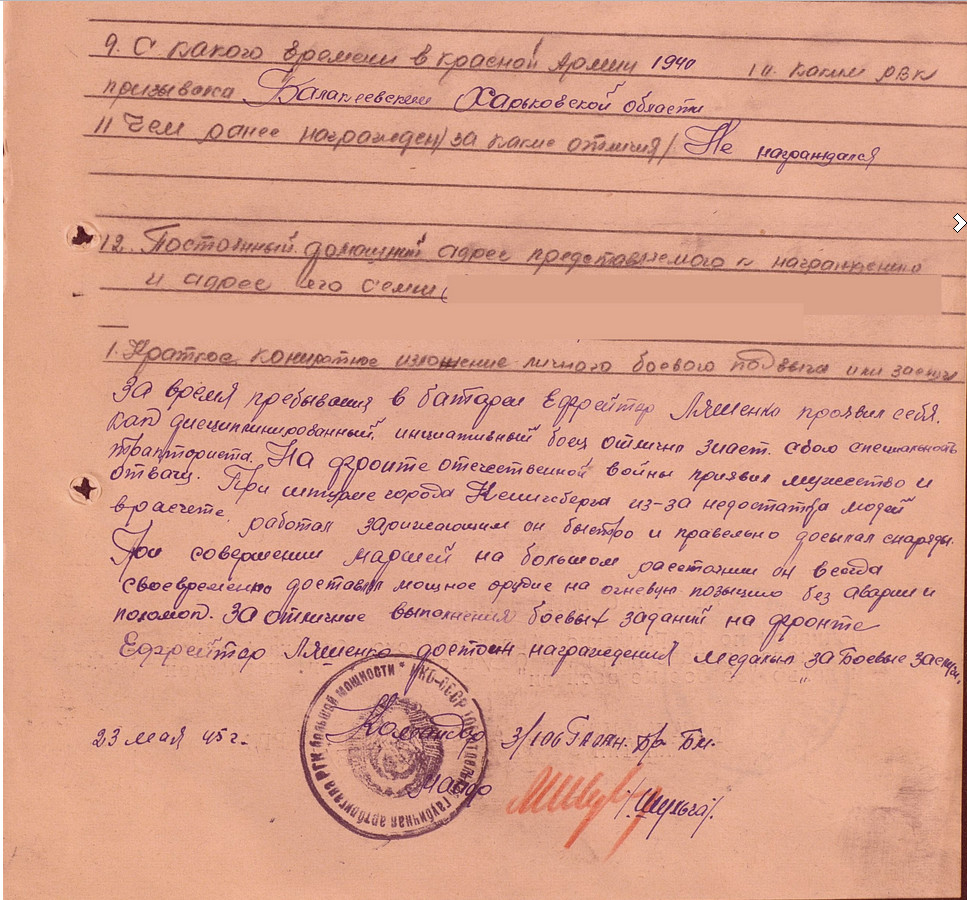 9. С какого времени в красной Армии 1940 10. каким РВК
призывался Балаклеевским Харьковской области
11 Чем ранее награжден /за какие отличия/ Не награждался
12. Постоянный домашний адрес представляемого к награждению
и адрес его семьи
1. Краткое конкретное изложение личного боевого подвига или заслуг
За время пребывания в батареи Ефрейтор Ляшенко проявил себя.
как дисциплинированный, инциативный боец отлично знает свою специальность
тракториста. На фронте отечественной войны проявил мужество и
отвагу. При штурме города Кенигсберга из-за недостатка людей
в расчете, работал заряжающим он быстро и правельно досылал снаряды.
При совершении маршей на большом расстоянии он всегда
своевременно доставлял мощное орудие на огневую позицию без аварий и
поломок. За отличные выполнения боевых заданий на фронте
Ефрейтор Ляшенко достоин награждения медалью „За Боевые заслуги,
23 мая 45 г. Командир 3/106 Бр. БМ.
Майор /Шульга/.
НКО-СССР гаубичная артбригада РГК большой мощности